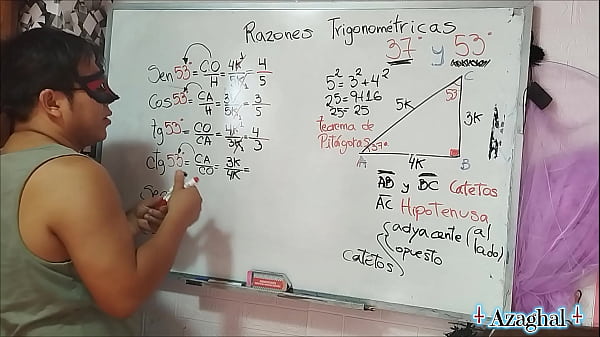 Razones Trigonométricas
37° y 53°
Sen53°= CO/H = 4K/5K = 4/5
Cos53°= CA/H = 3K/5K = 3/5
tg53°= CO/CA = 4K/3K = 4/3
ctg53°= CA/CO = 3K/4K =
5²=3²+4²
25=9+16
25=25
teorema de
Pitágoras
C
53
5K
3K
A
37°
4K
B
AB y BC Catetos
AC Hipotenusa
Catetos { adyacente (al lado)
opuesto
Azaghal